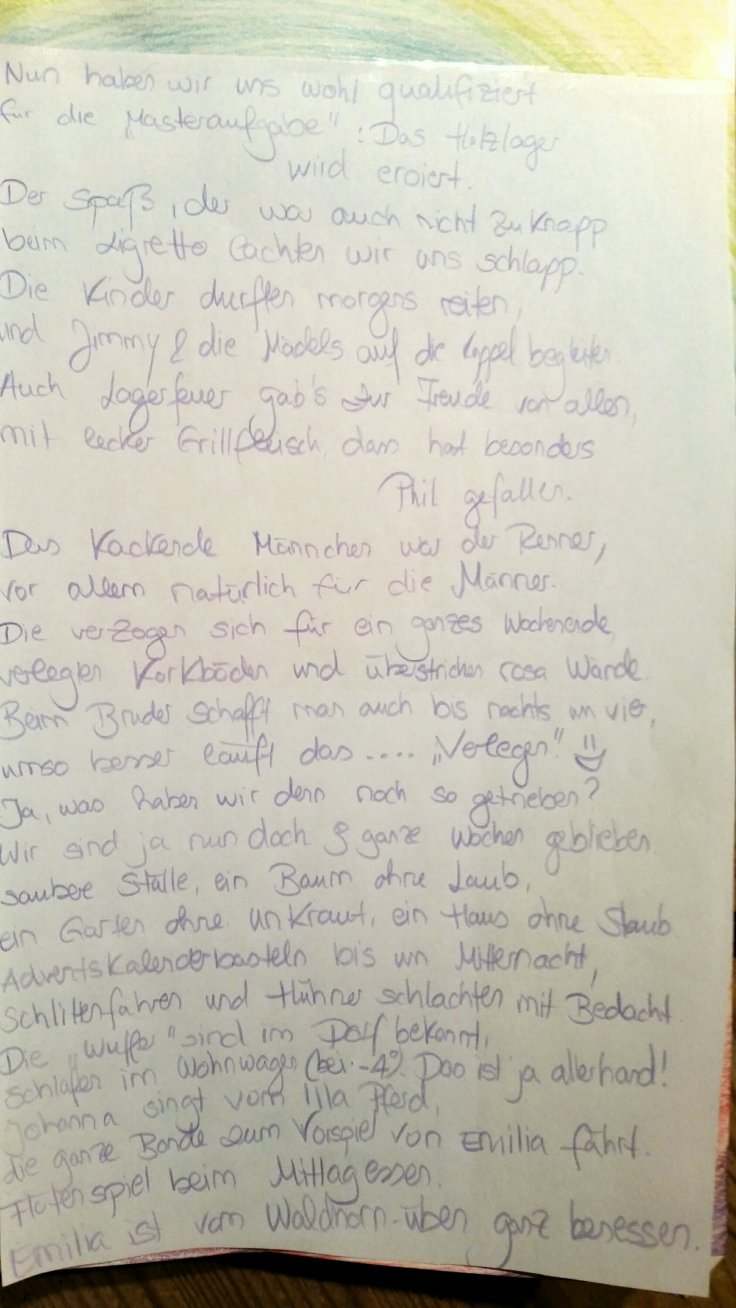 Nun haben wir uns wohl qualifiziert
für die "Masteraufgabe": Das Holzlager
wird eroiert.
Der Spaß, der war auch nicht zu knapp
beim Ligretto lachten wir uns schlapp.
Die Kinder durften morgens reiten,
und Jimmy & die Mädels auf die Koppel begleiten.
Auch Lagerfeuer gab's zur Freude von allen,
mit lecker Grillfleisch, dass hat besonders
Phil gefallen.
Das Kackende Männchen war der Renner,
vor allem natürlich für die Männer.
Die verzogen sich für ein ganzes Wochenende,
verlegten Korkböden und überstrichen rosa Wände.
Beim Bruder schafft man auch bis nachts um vier,
umso besser läuft das .... "Verlegen"
Ja, was haben wir denn noch so getrieben?
Wir sind ja nun doch ganze Wochen geblieben.
saubere Ställe, ein Baum ohne Laub,
ein Garten ohne Unkraut, ein Haus ohne Staub.
Adventskalenderbasteln bis um Mitternacht,
Schlittenfahren und Hühner schlachten mit Bedacht.
Die "Wuffer" sind im Dorf bekannt,
schlafen im Wohnwagen (bei -4°). Das ist ja allerhand!
Johanna singt vom lila Pferd,
die ganze Bande zum Vorspiel von Emilia fährt.
Flötenspiel beim Mittagessen.
Emilia ist vom Waldhorn-üben ganz besessen.